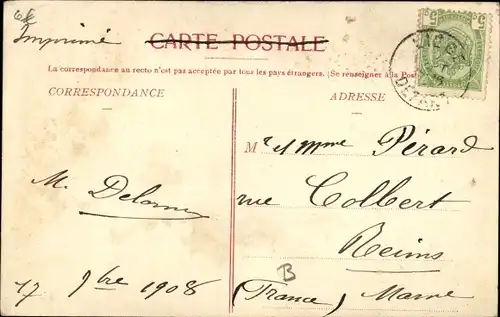 Imprimé
CARTE POSTALE
La correspondance au recto n'est pas acceptée par tous les pays étrangers. (Se renseigner à la Post
CORRESPONDANCE
ADRESSE
M r et Mme Pérard
rue Colbert
Reims
(France) Marne
B
M. Delorme
17 9bre 1908
5 5
DEPART